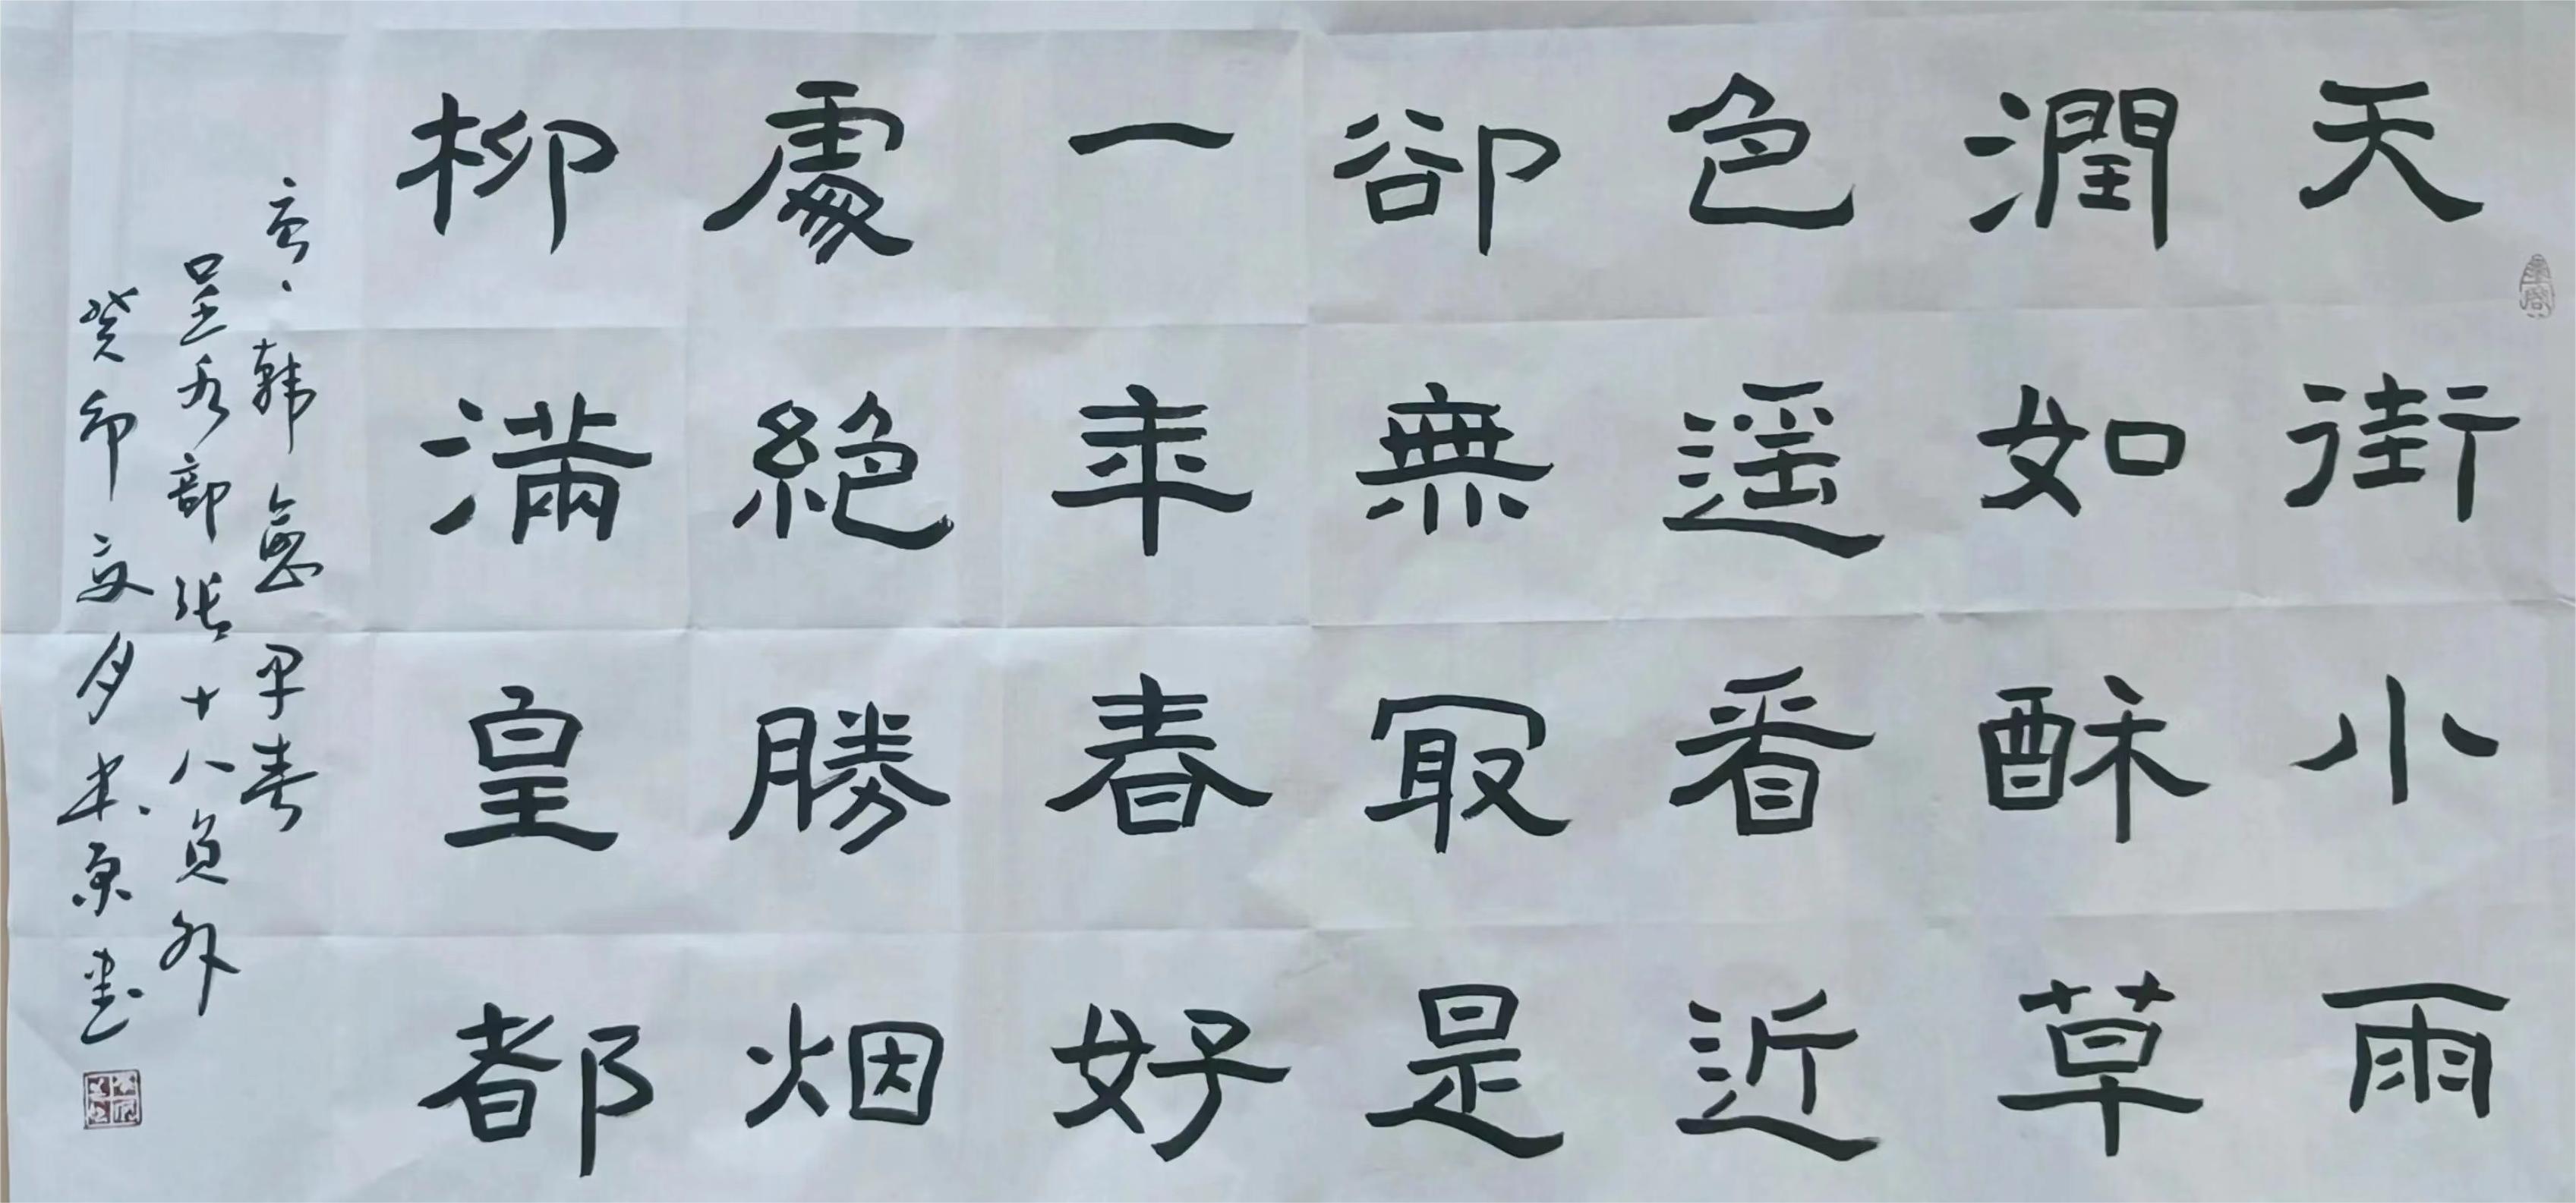 天街小雨
潤如酥草
色遥看近
卻無冣是
一年春好
處絕勝烟
柳滿皇都
唐韩愈早春
呈水部张十八員外
癸卯夏月 书